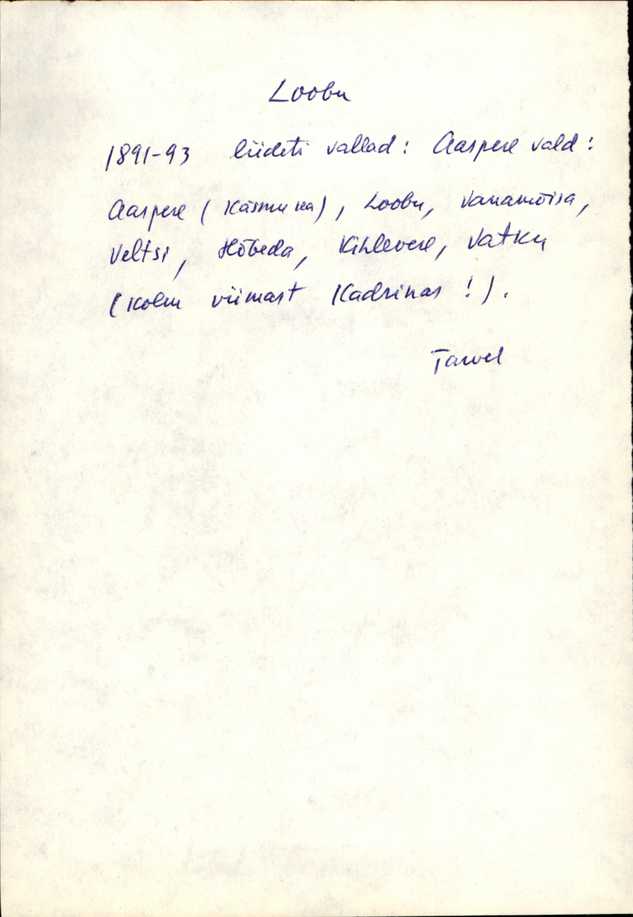 Loobu
1891-93 liideti vallad: Aaspere vald:
Aaspere (Käsmuna), Loobu, Vanamõisa,
Veltsi, Hõbeda, Kihlevere, Vatku
(kolm viimast Kadrinas!).
Tarvel